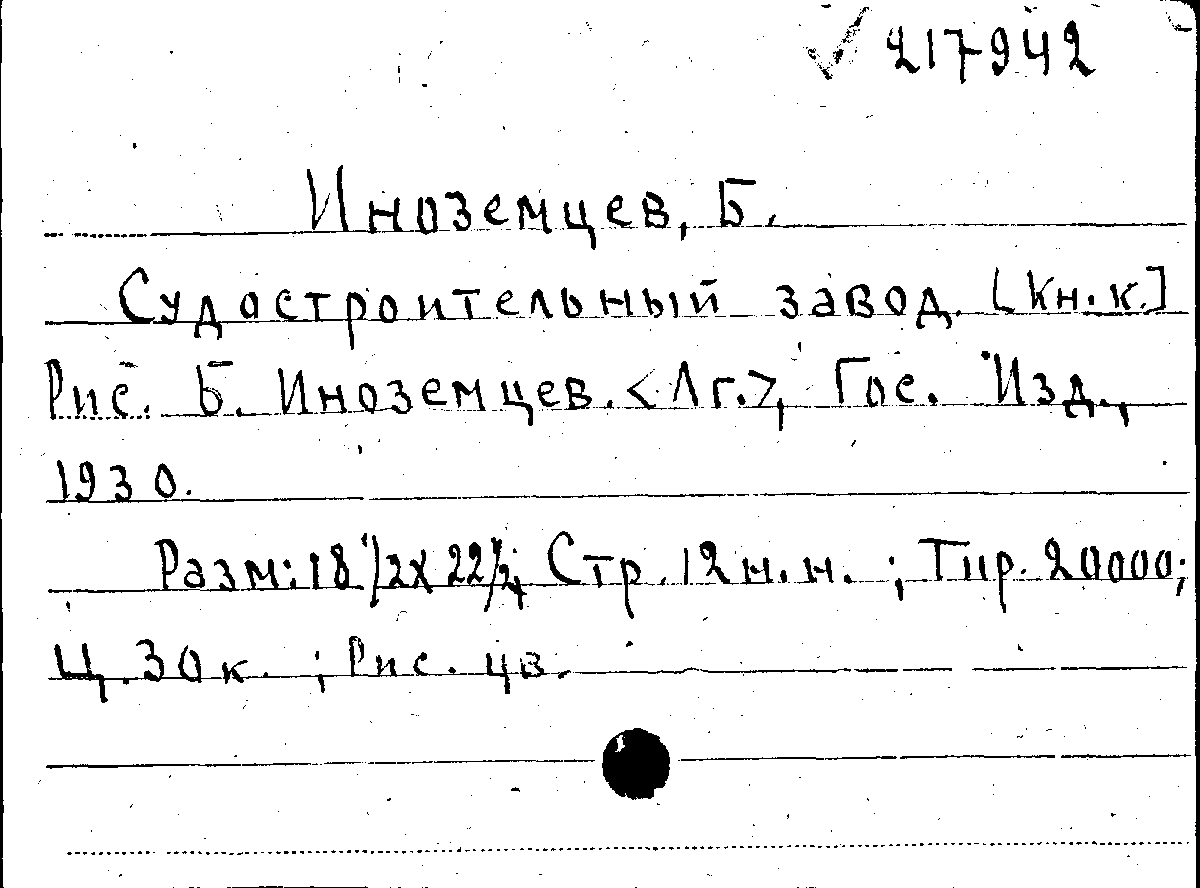 ✓ 217942
Иноземцев, Б.
Судостроительный завод. [Кн.к.]
Рис. Б. Иноземцев. <Лг.>, Гос. Изд.,
1930.
Разм: 18 1/2 х 22 1/2; Стр. 12 н.н. ; Тир. 20000;
Ц. 30 к. ; Рис. цв.